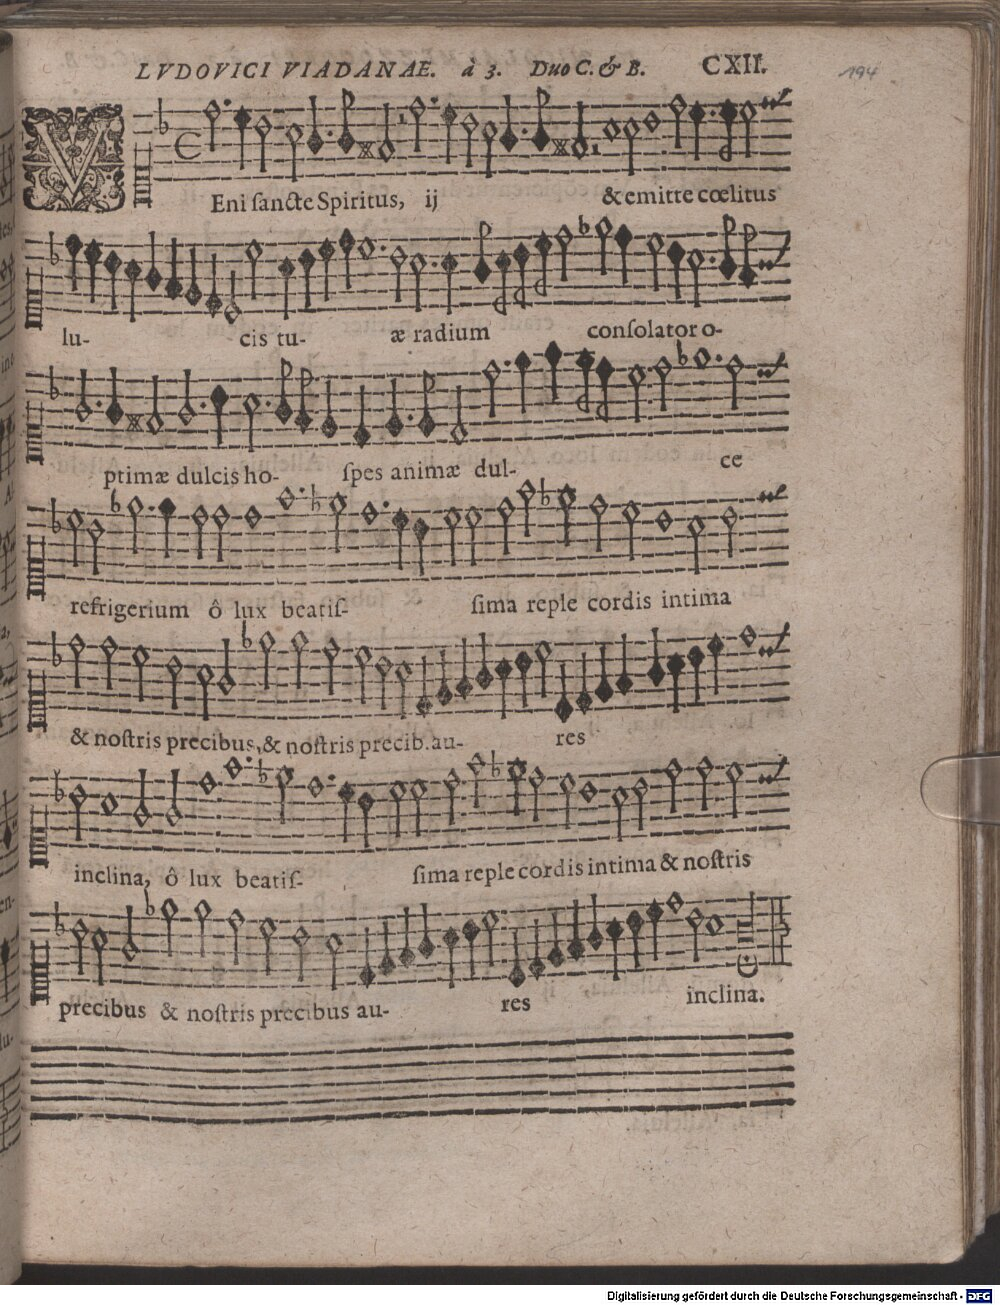 LVDOVICI VIADANAE. à 3. Duo C. & B. CXII.
194
VEni ſancte Spiritus, ij & emitte cœlitus
lu- cis tu- æ radium conſolator o-
ptimæ dulcis ho- ſpes animæ dul- ce
refrigerium ô lux beatiſ- ſima reple cordis intima
& noſtris precibus, & noſtris precib. au- res
inclina, ô lux beatiſ- ſima reple cordis intima & noſtris
precibus & noſtris precibus au- res inclina.
Digitalisierung gefördert durch die Deutsche Forschungsgemeinschaft - DFG